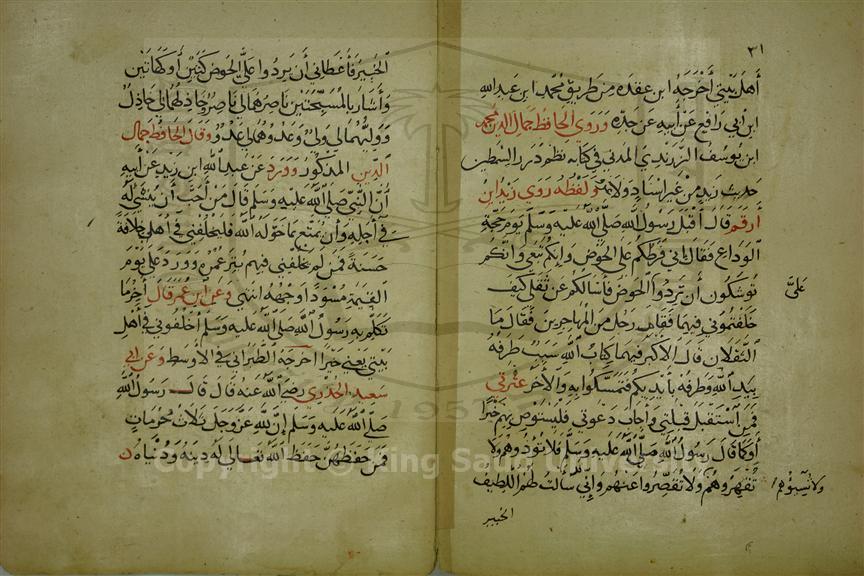 ٢١
أهل بيتي أخرجه ابن عقده من طريق محمد ابن عبد الله
ابن أبي رافع عن أبيه عن جده وروى الحافظ جمال الدين محمد
ابن يوسف الزرندي المدني في كتابه نظم درر السمطين
حديث زيد من غير اسناد ولا عزو لفظه روى زيد ابن
أرقم قال أقبل رسول الله صلى الله عليه وسلم يوم حجة
الوداع فقال اني فرطكم على الحوض وإنكم تبعي وإنكم
توشكون أن تردوا الحوض فأسألكم عن ثقلي كيف
عليَّ
خلفتموني فيهما فقام رجل من المهاجرين فقال ما
الثقلان قال الأكبر فيهما كتاب الله سبب طرفه
بيد الله وطرفه بأيديكم فتمسكوا به والآخر عترتي
فمن استقبل قبلتي وأجاب دعوتي فليستوص بهم خيرا
أو كما قال رسول الله صلى الله عليه وسلم فلا تؤذوهم ولا
تقهروهم ولا تقصروا عنهم وإني سألت لهم اللطيف
ولا تسبوهم
الخبير
الخبير فأعطاني أن يردوا علي الحوض كتين أو كهاتين
وأشار بالمسبحتين ناصرهما لي ناصر وخاذلهما لي خاذل
ووليهما لي ولي وعدوهما لي عدو وقال الحافظ جمال
الدين المذكور وورد عن عبد الله ابن زيد عن أبيه
أن النبي صلى الله عليه وسلم قال من أحب أن ينسئ له
في أجله وأن يمتع بما خوله الله فليخلفني في أهلي خلافة
حسنة فمن لم يخلفني فيهم بتر عمره وورد علي يوم
القيمة مسودا وجهه انتهى وعن ابن عمر قال آخر ما
تكلم به رسول الله صلى الله عليه وسلم أخلفوني في أهل
بيتي يعني خيرا أخرجه الطبراني في الأوسط وعن أبي
سعيد الخدري رضي الله عنه قال قال رسول الله
صلى الله عليه وسلم إن لله عز وجل ثلاث حرمات
فمن حفظهن حفظ الله تعالى له دينه ودنياه
Copyright © King Saud University
1957